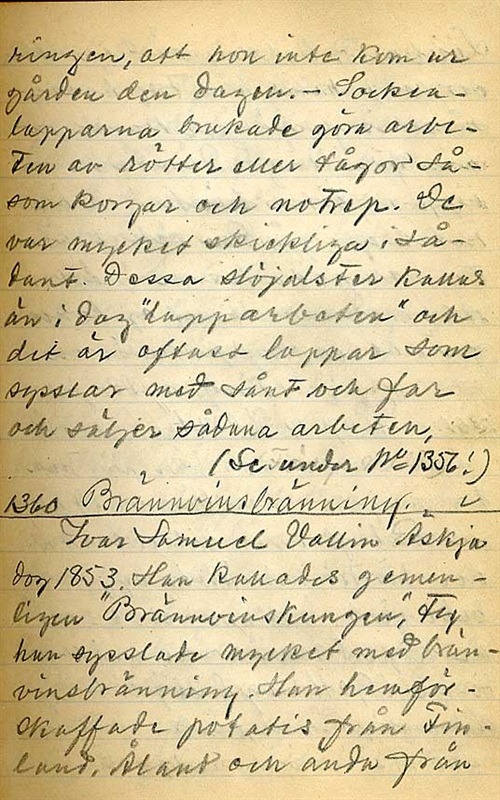 ringen, att hon inte kom ur
gården den dagen. – Socken-
lapparna brukade göra arbe-
ten av rötter eller tågor så-
som korgar och notrep. De
var mycket skickliga i så-
dant. Dessa slöjalster kallas
än i dag "lapparbeten" och
det är oftast lappar som
sysslar med sånt och far
och säljer sådana arbeten,
(Se under No 1356!)
1360 Brännvinsbränning.
Ivar Samuel Vallin Askja
dog 1853. Han kallades gemen-
ligen "Brännvinskungen", ty
han sysslade mycket med brän-
vinsbränning. Han hemför-
skaffade potatis från Fin-
land, Åland och ända från